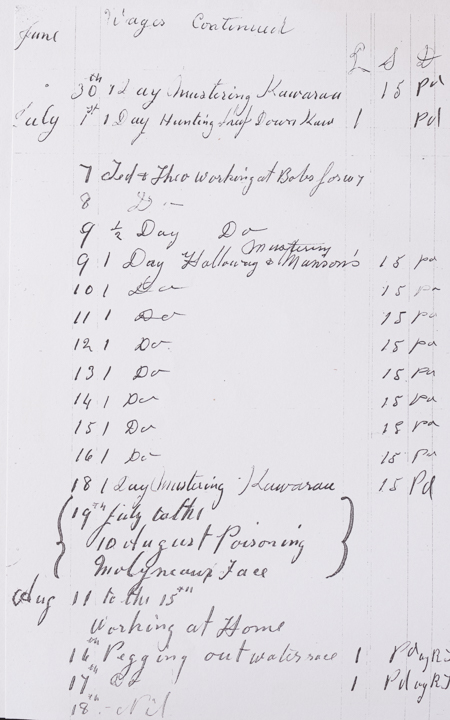 June Wages Continued
£ S D
30th 1 Day Mustering Kawarau 15 Pd
July 1st 1 Day Hunting Down Kaw 1 Pd
7 Ted & Theo working at Bobs
8 Do
9 ½ Day Do
Mustering
9 1 Day Holloway & Manson's 15 pd
10 1 Do 15 pd
11 1 Do 15 pd
12 1 Do 15 pd
13 1 Do 15 pd
14 1 Do 15 pd
15 1 Do 15 pd
16 1 Do 15 pd
18 1 Day Mustering Kawarau 15 Pd
19th July to the
10 August Poisoning
Molyneaux Face
Aug 11 to the 15th
Working at Home
16th Pegging out water race 1 Pd by RJ
17th Do 1 Pd by RJ
18th - Nil